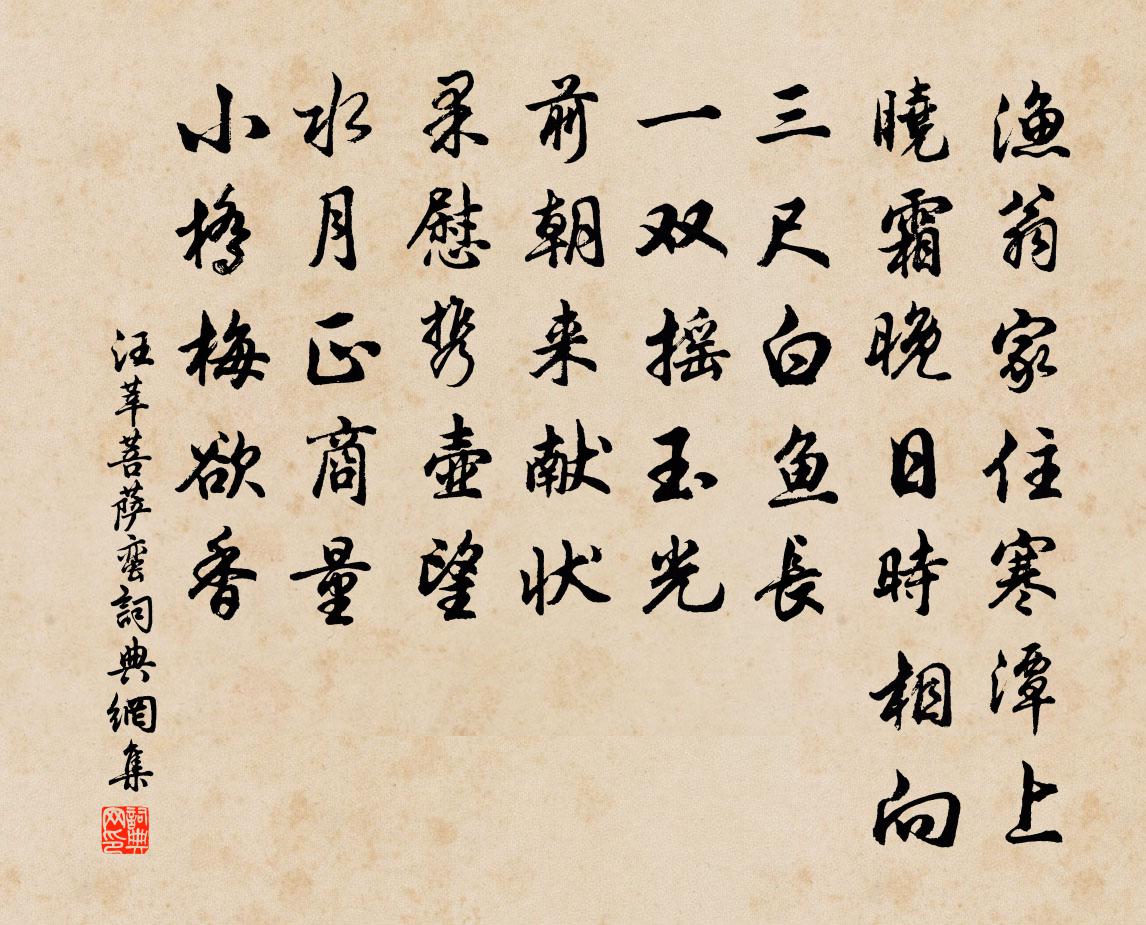 渔翁家住寒潭上
曉霜晚日時相向
三尺白鱼長
一双摇玉光
前朝来献状
采慰携壶望
水月正商量
小橋梅欲香
汪莘菩萨蛮詞典網集
詞典网印